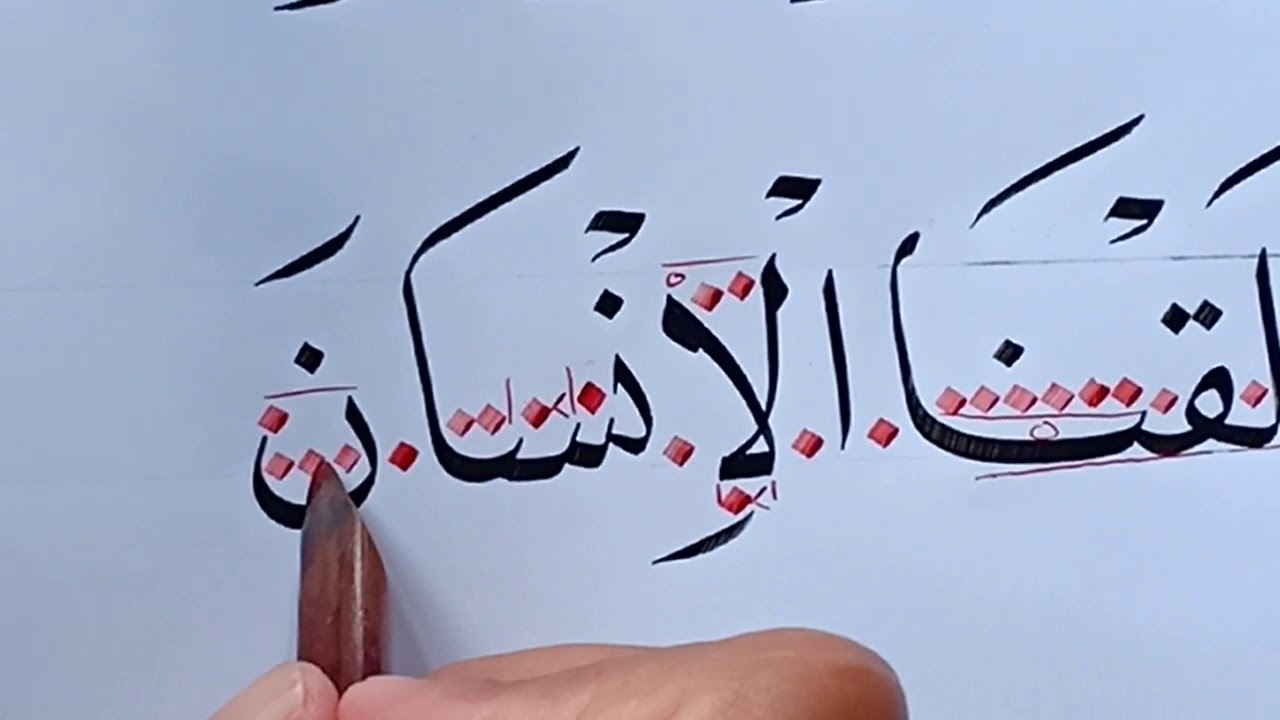 لَقْنَا الْاِنْسَانَ